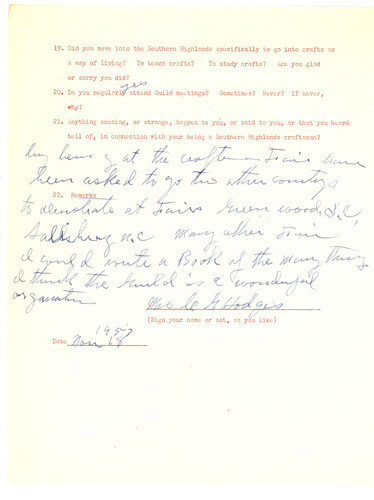 19. Did you move into the Southern Highlands specifically to go into crafts as
a way of living? To teach crafts? To study crafts? Are you glad
or sorry you did?
yes
20. Do you regularly attend Guild meetings? Sometimes? Never? If never,
why?
21. Anything amusing, or strange, happen to you, or said to you, or that you heard
tell of, in connection with your being a Southern Highlands craftsman?
at the craftman Fair have
been asked to go two other countys
22. Remarks
to demstrate at Fairs Greenwood, S.C,
Sallisbery N.C many other Fair
I could write a Book of the many Thing
I thank the Guild is a wonderful
organisation
Mrs C G Hodges
(Sign your name or not, as you like)
1957
Date Nov 18